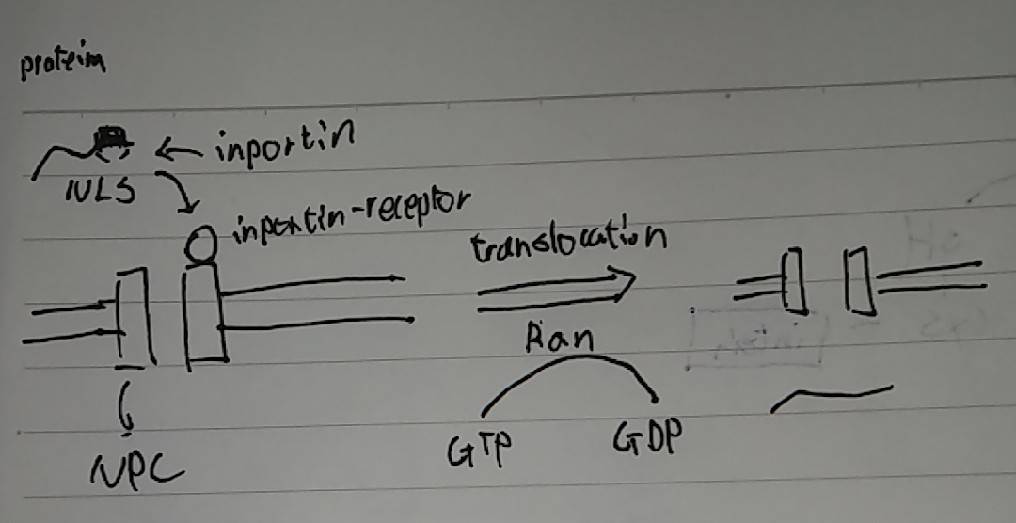 protein
← inportin
NLS
inportin-receptor
translocation
Ran
GTP GDP
NPC